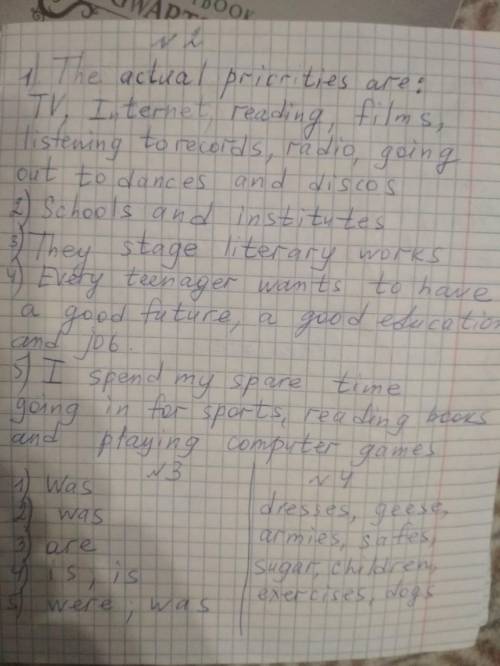 WORKBOOK
№2
1) The actual priorities are:
TV, Internet, reading, films,
listening to records, radio, going
out to dances and discos
2) Schools and institutes
3) They stage literary works
4) Every teenager wants to have
a good future, a good education
and job.
5) I spend my spare time
going in for sports, reading books
and playing computer games
№3
1) was
2) was
3) are
4) is, is
5) were; was
№4
dresses, geese,
armies, safes,
sugar, children,
exercises, dogs